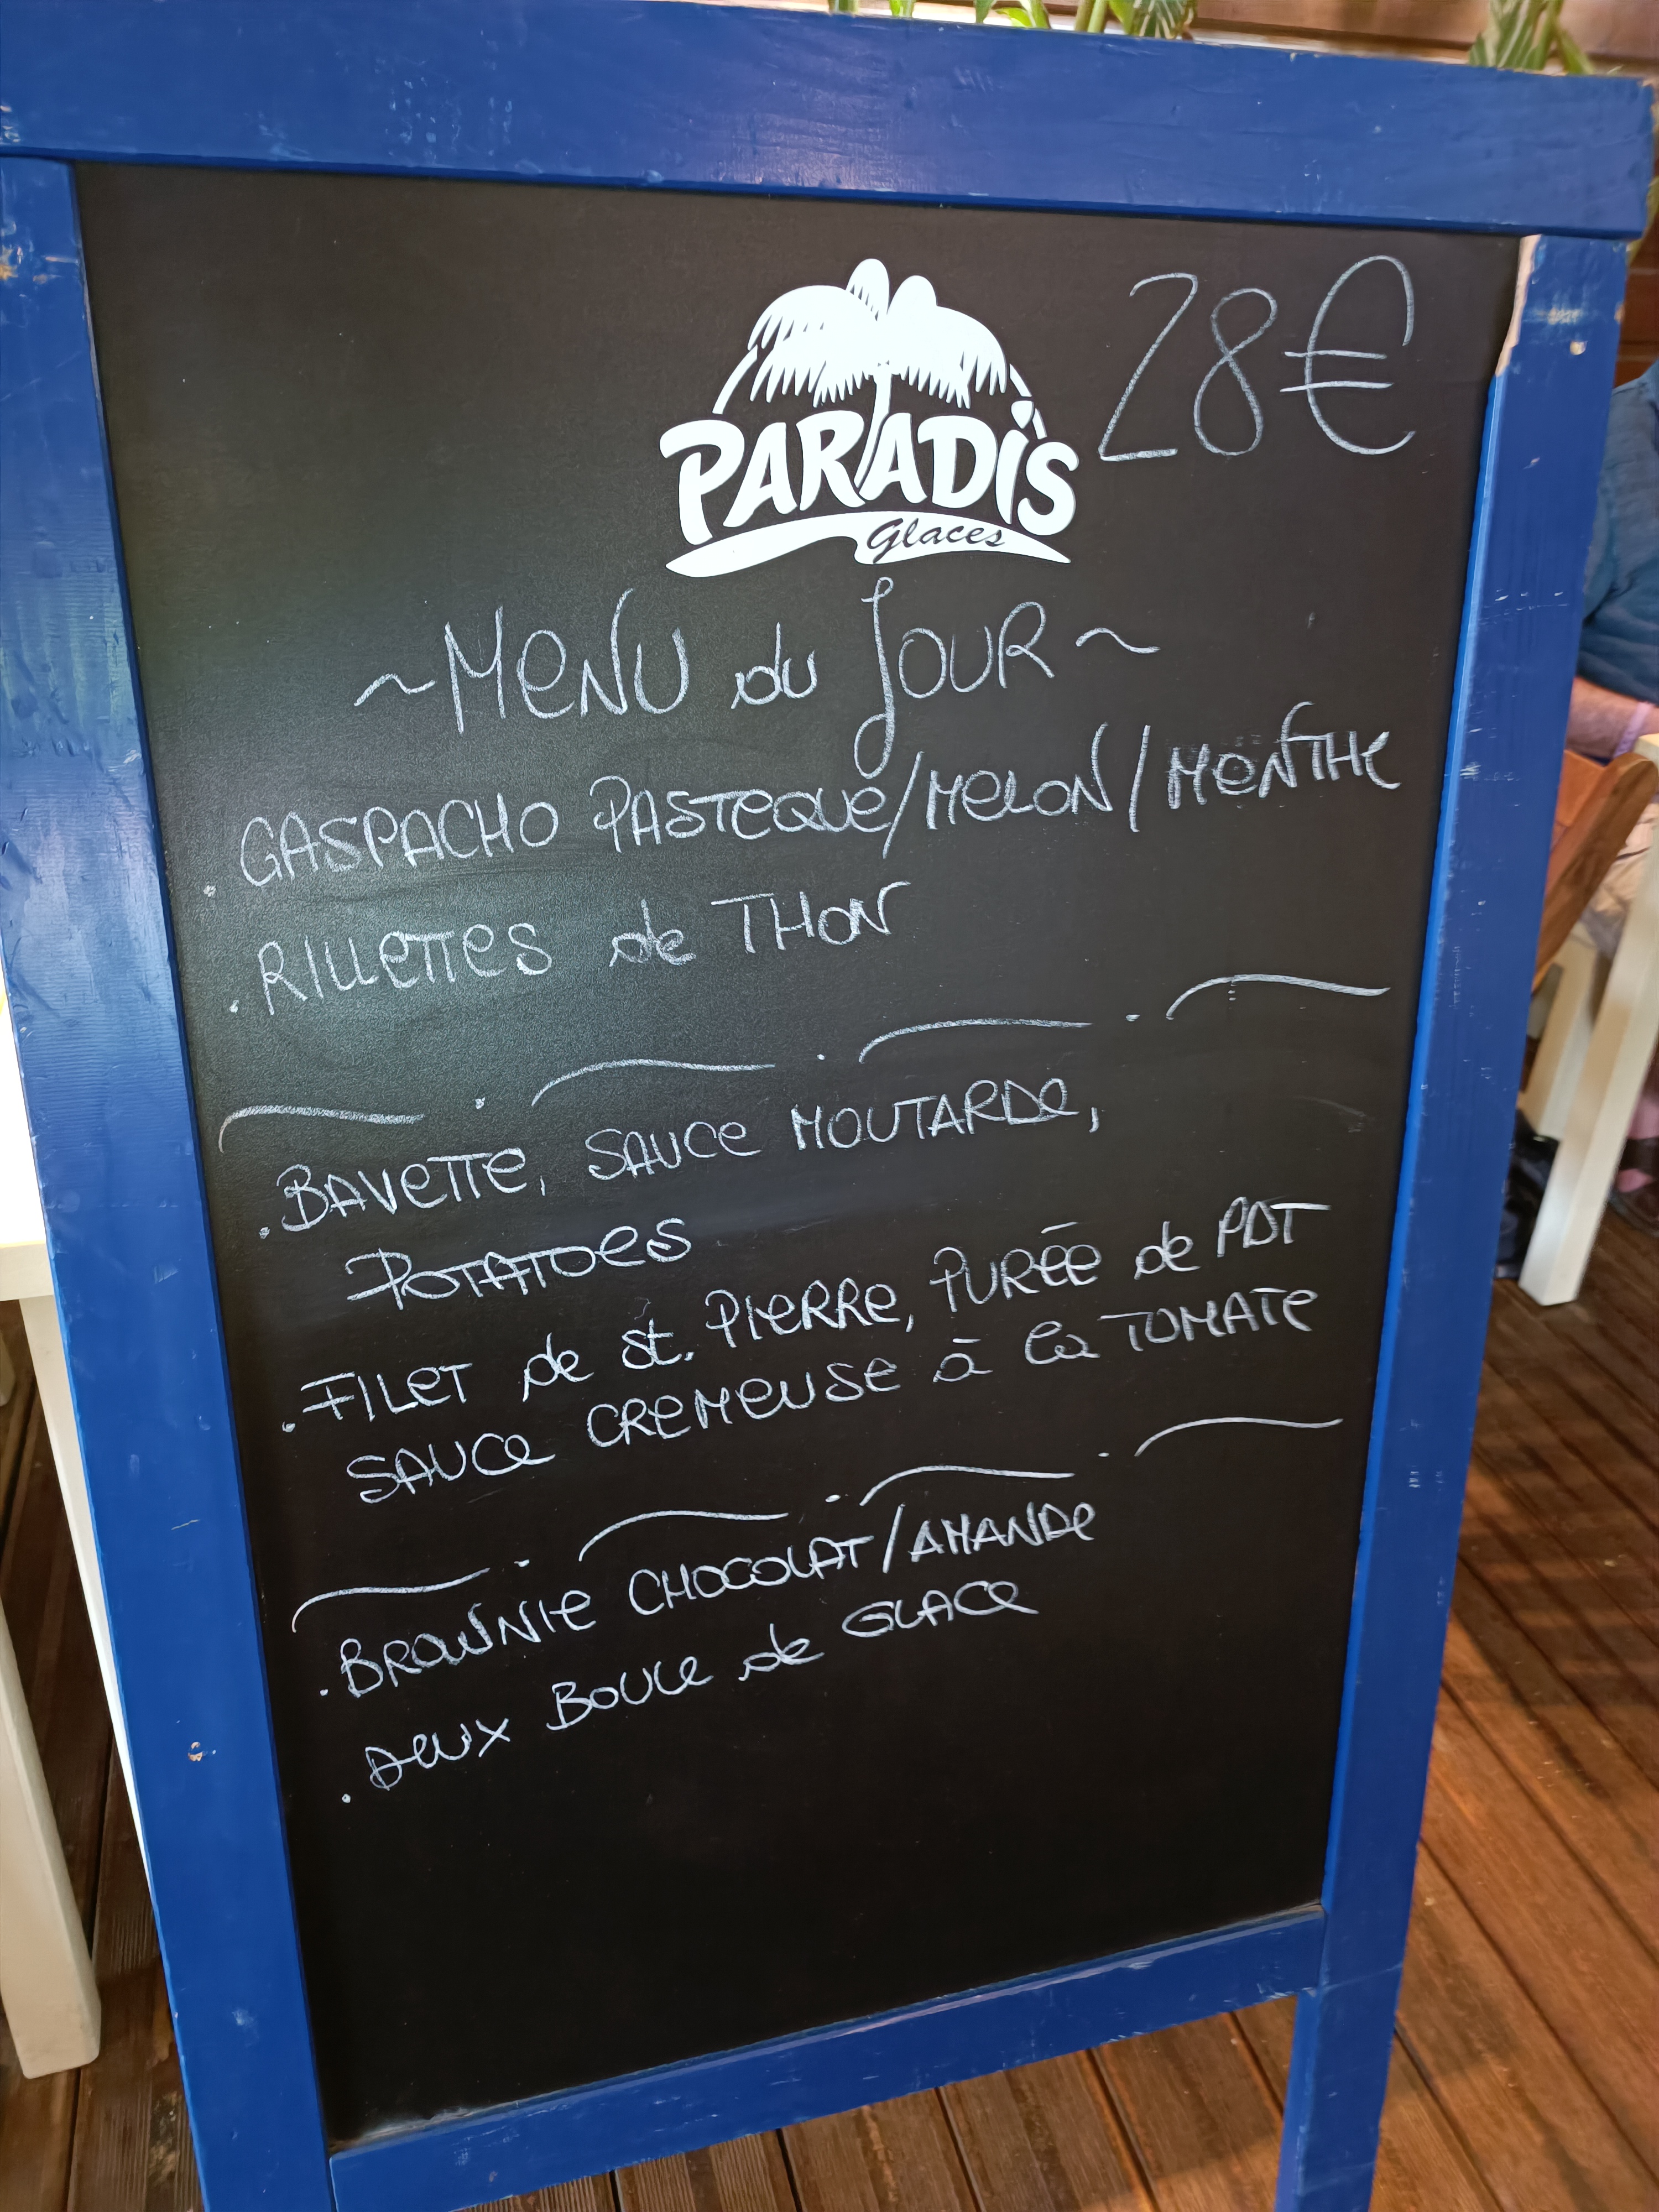 PARADIS
Glaces
28€
~ MENU du JOUR ~
. GASPACHO PASTEQUE/MELON/MENTHE
. RILLETTES de THON
. BAVETTE, SAUCE MOUTARDE,
POTATOES
. FILET de St. PIERRE, PURÉE de PDT
SAUCE CREMEUSE à la TOMATE
. BROWNIE CHOCOLAT/AMANDE
. DEUX BOULE de GLACE